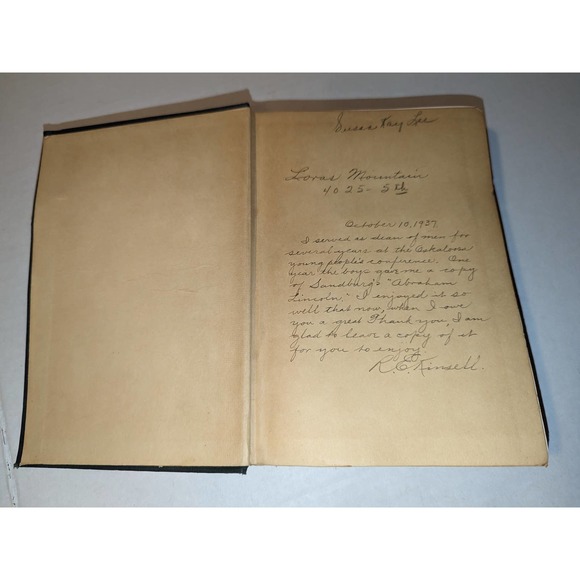 Susan Kay Lee
Loras Mountain
4025 - 5th
October 10, 1937
I served as dean of men for
several years at the Oskaloosa
young people's conference. One
year the boys gave me a copy
of Sandburg's "Abraham
Lincoln." I enjoyed it so
well that now, when I owe
you a great Thank you, I am
glad to leave a copy of it
for you to enjoy.
R. E. Kinsell.